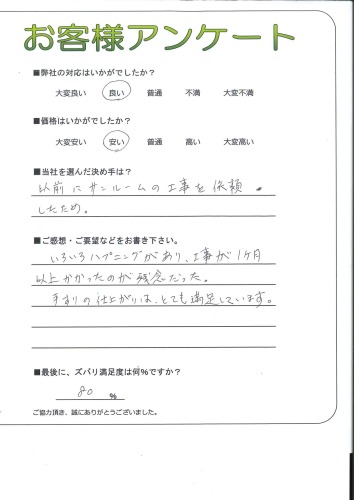 お客様アンケート
■弊社の対応はいかがでしたか？
大変良い 良い 普通 不満 大変不満
■価格はいかがでしたか？
大変安い 安い 普通 高い 大変高い
■当社を選んだ決め手は？
以前にサンルームの工事を依頼
したため。
■ご感想・ご要望などをお書き下さい。
いろいろハプニングがあり、工事が1ヶ月
以上かかったのが残念だった。
手すりの仕上がりは、とても満足しています。
■最後に、ズバリ満足度は何％ですか？
80 ％
ご協力頂き、誠にありがとうございました。